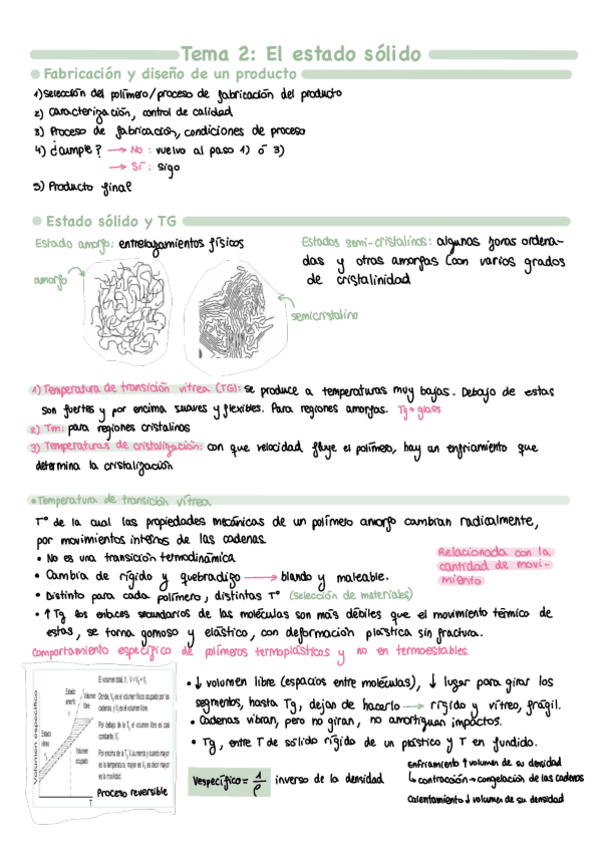 Tema 2: El estado sólido
Fabricación y diseño de un producto
1) Selección del polímero/proceso de fabricación del producto
2) Caracterización, control de calidad
3) Proceso de fabricación, condiciones de proceso
4) ¿cumple? → No : vuelvo al paso 1) ó 3)
→ Sí : Sigo
5) Producto final
Estado sólido y TG
Estado amorfo: entrelazamientos físicos
Estados semi-cristalinos: algunas zonas ordena-
das y otras amorfas con varios grados
de cristalinidad
amorfo
semicristalino
1) Temperatura de transición vítrea (TG): se produce a temperaturas muy bajas. Debajo de estas
son fuertes y por encima suaves y flexibles. Para regiones amorfas. Tg → glass
2) Tm: para regiones cristalinas
3) Temperaturas de cristalización: con que velocidad fluye el polímero, hay un enfriamiento que
determina la cristalización
• Temperatura de transición vítrea
Tº de la cual las propiedades mecánicas de un polímero amorfo cambian radicalmente,
por movimientos internos de las cadenas.
• No es una transición termodinámica
Relacionada con la
cantidad de movi-
miento
• Cambia de rígido y quebradizo → blando y maleable.
• Distinto para cada polímero, distintas Tº (selección de materiales)
• ↑ Tg los enlaces secundarios de las moléculas son más débiles que el movimiento térmico de
estas, se torna gomoso y elástico, con deformación plástica sin fractura.
Comportamiento específico de polímeros termoplásticos y no en termoestables.
Volumen específico
Estado vítreo
Estado amorfo
Volumen libre
Volumen ocupado
T
El volumen total, V, V = V₀ +
Donde, V₀ es el volumen físico ocupado por las
cadenas, y es el volumen libre.
Por debajo de la Tg el volumen libre es casi
constante,
Por encima de la Tg aumenta y cuanto mayor
es la temperatura, mayor es es decir mayor
es la movilidad.
Proceso reversible
• ↓ volumen libre (espacios entre moléculas), ↓ lugar para girar los
segmentos, hasta Tg, dejan de hacerlo → rígido y vítreo, frágil.
• Cadenas vibran, pero no giran, no amortiguan impactos.
• Tg, entre T de sólido rígido de un plástico y T en fundido.
Vespecífico = 1/ρ inverso de la densidad
enfriamiento ↑ volumen de su densidad
↳ contracción → congelación de las cadenas
Calentamiento ↓ volumen de su densidad